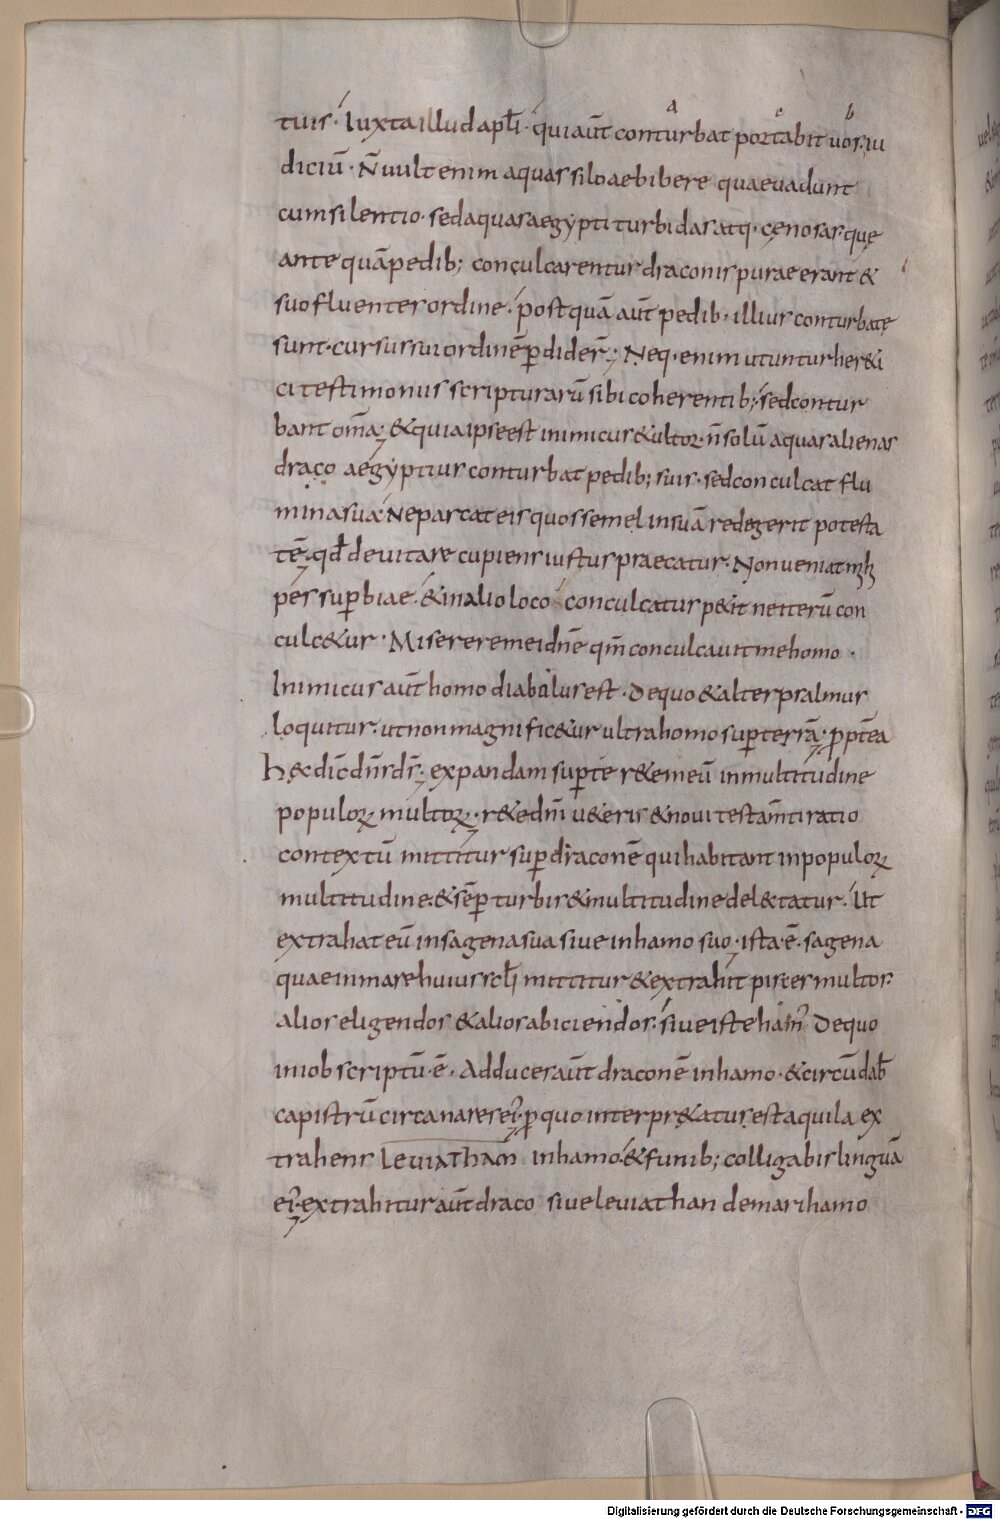 tuis· Iuxta illud apłi· qui aūt conturbat portabit uos· iu
diciū· N̄ uult enim aquas siloae bibere quae uadunt
cum silentio· sed aquas aegypti turbidas atq· cęnosas quę
ante quā pedib; conculcarentur draconis purae erant &
suo fluenter ordine· post quā aūt pedib· illius conturbatę
sunt· cursus sui ordinē p̱didert̄; Neq· enim utuntur her&i
ci testimoniis scripturarū sibi coherentib; sed contur
bant om̄a; & quia ipse est inimicus & ultor· n̄ solū aquas alienas
draco aegyptius conturbat pedib; suis· sed conculcat flu
mina sua· Ne parcat eis quos semel in suā redegerit potesta
tē· qđ deuitare cupiens iustus praecatur· Non ueniat mħ
pes sup̱biae· & in alio loco conculcatus p&it ne iterū con
culc&ur· Miserere mei dn̄e qm̄ conculcauit me homo·
Inimicus aūt homo diabolus est· De quo & alter psalmus
loquitur· ut non magnific&ur ultra homo sup̱ terrā· p̱pt̄ea
H&c dic̄ dn̄s ds̄· expandam sup̱ te r&e meū in multitudine
populoꝝ multoꝝ· r&e dn̄i u&eris & noui testam̄ti ratio
contextū mittitur sup̱ draconē qui habitant in populoꝝ
multitudine· & sēp̱ turbis & multitudine del&tatur· Ut
extrahat eū in sagena sua siue in hamo suo· ista· ē· sagena
quae in mare huius scłi mittitur & extrahit pisces multos·
alios eligendos & alios abiciendos· siue iste ham̄ De quo
in iob scriptū· ē· Adduces aūt draconē in hamo· & circūdab̄
capistrū circa nares ei· p̱ quo interpr&atus est aquila ex
trahens Leuiatham in hamo· & funib; colligabis linguā
ei· extrahitur aūt draco siue leuiathan de mari hamo
Digitalisierung gefördert durch die Deutsche Forschungsgemeinschaft - DFG